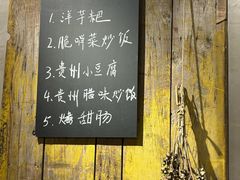 1. 洋芋粑
2. 脆哨蛋炒饭
3. 贵州小豆腐
4. 贵州腊味炒饭
5. 烤甜肠